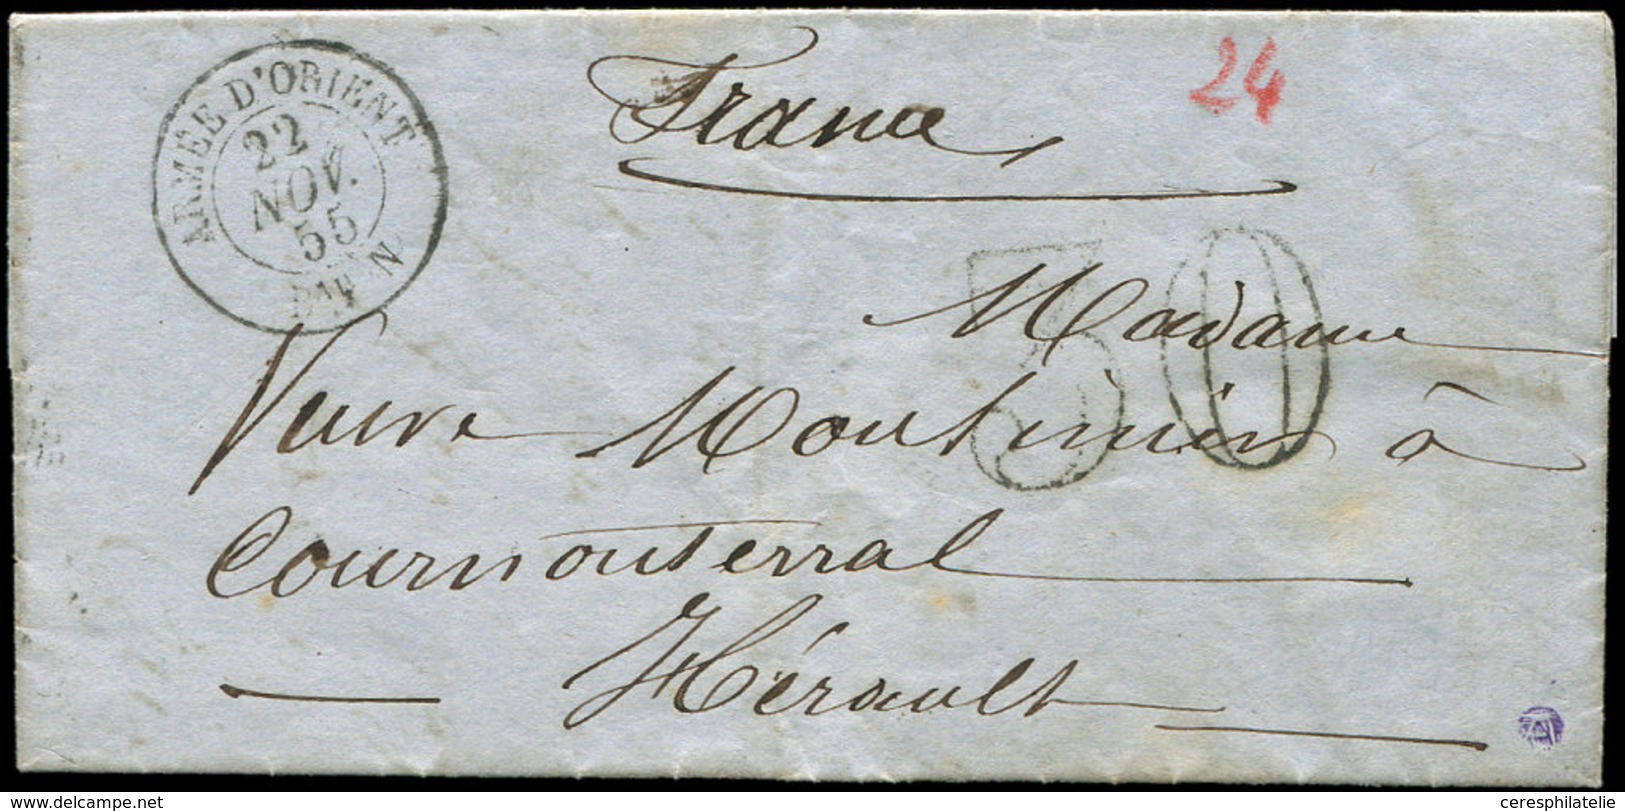 ARMÉE D'ORIENT
22
NOV.
55
Bau N
France
24
30
Madame
Veuve Moutinier à
Cournonterral
Hérault
www.delcampe.net
ceresphilatelie